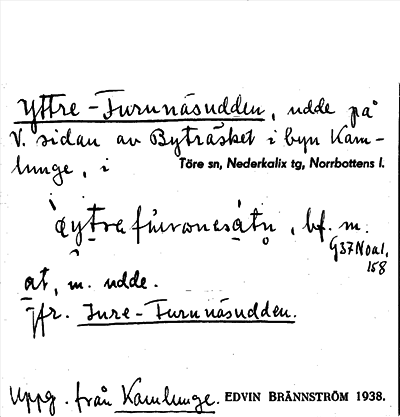 Yttre-Furunäsudden, udde på
V. sidan av Byträsket i byn Kam-
lunge, i Töre sn, Nederkalix tg, Norrbottens l.
bf. m.
G37Noal,
158
at, m. udde.
Jfr. Inre-Furunäsudden.
Uppg. från Kamlunge. EDVIN BRÄNNSTRÖM 1938.